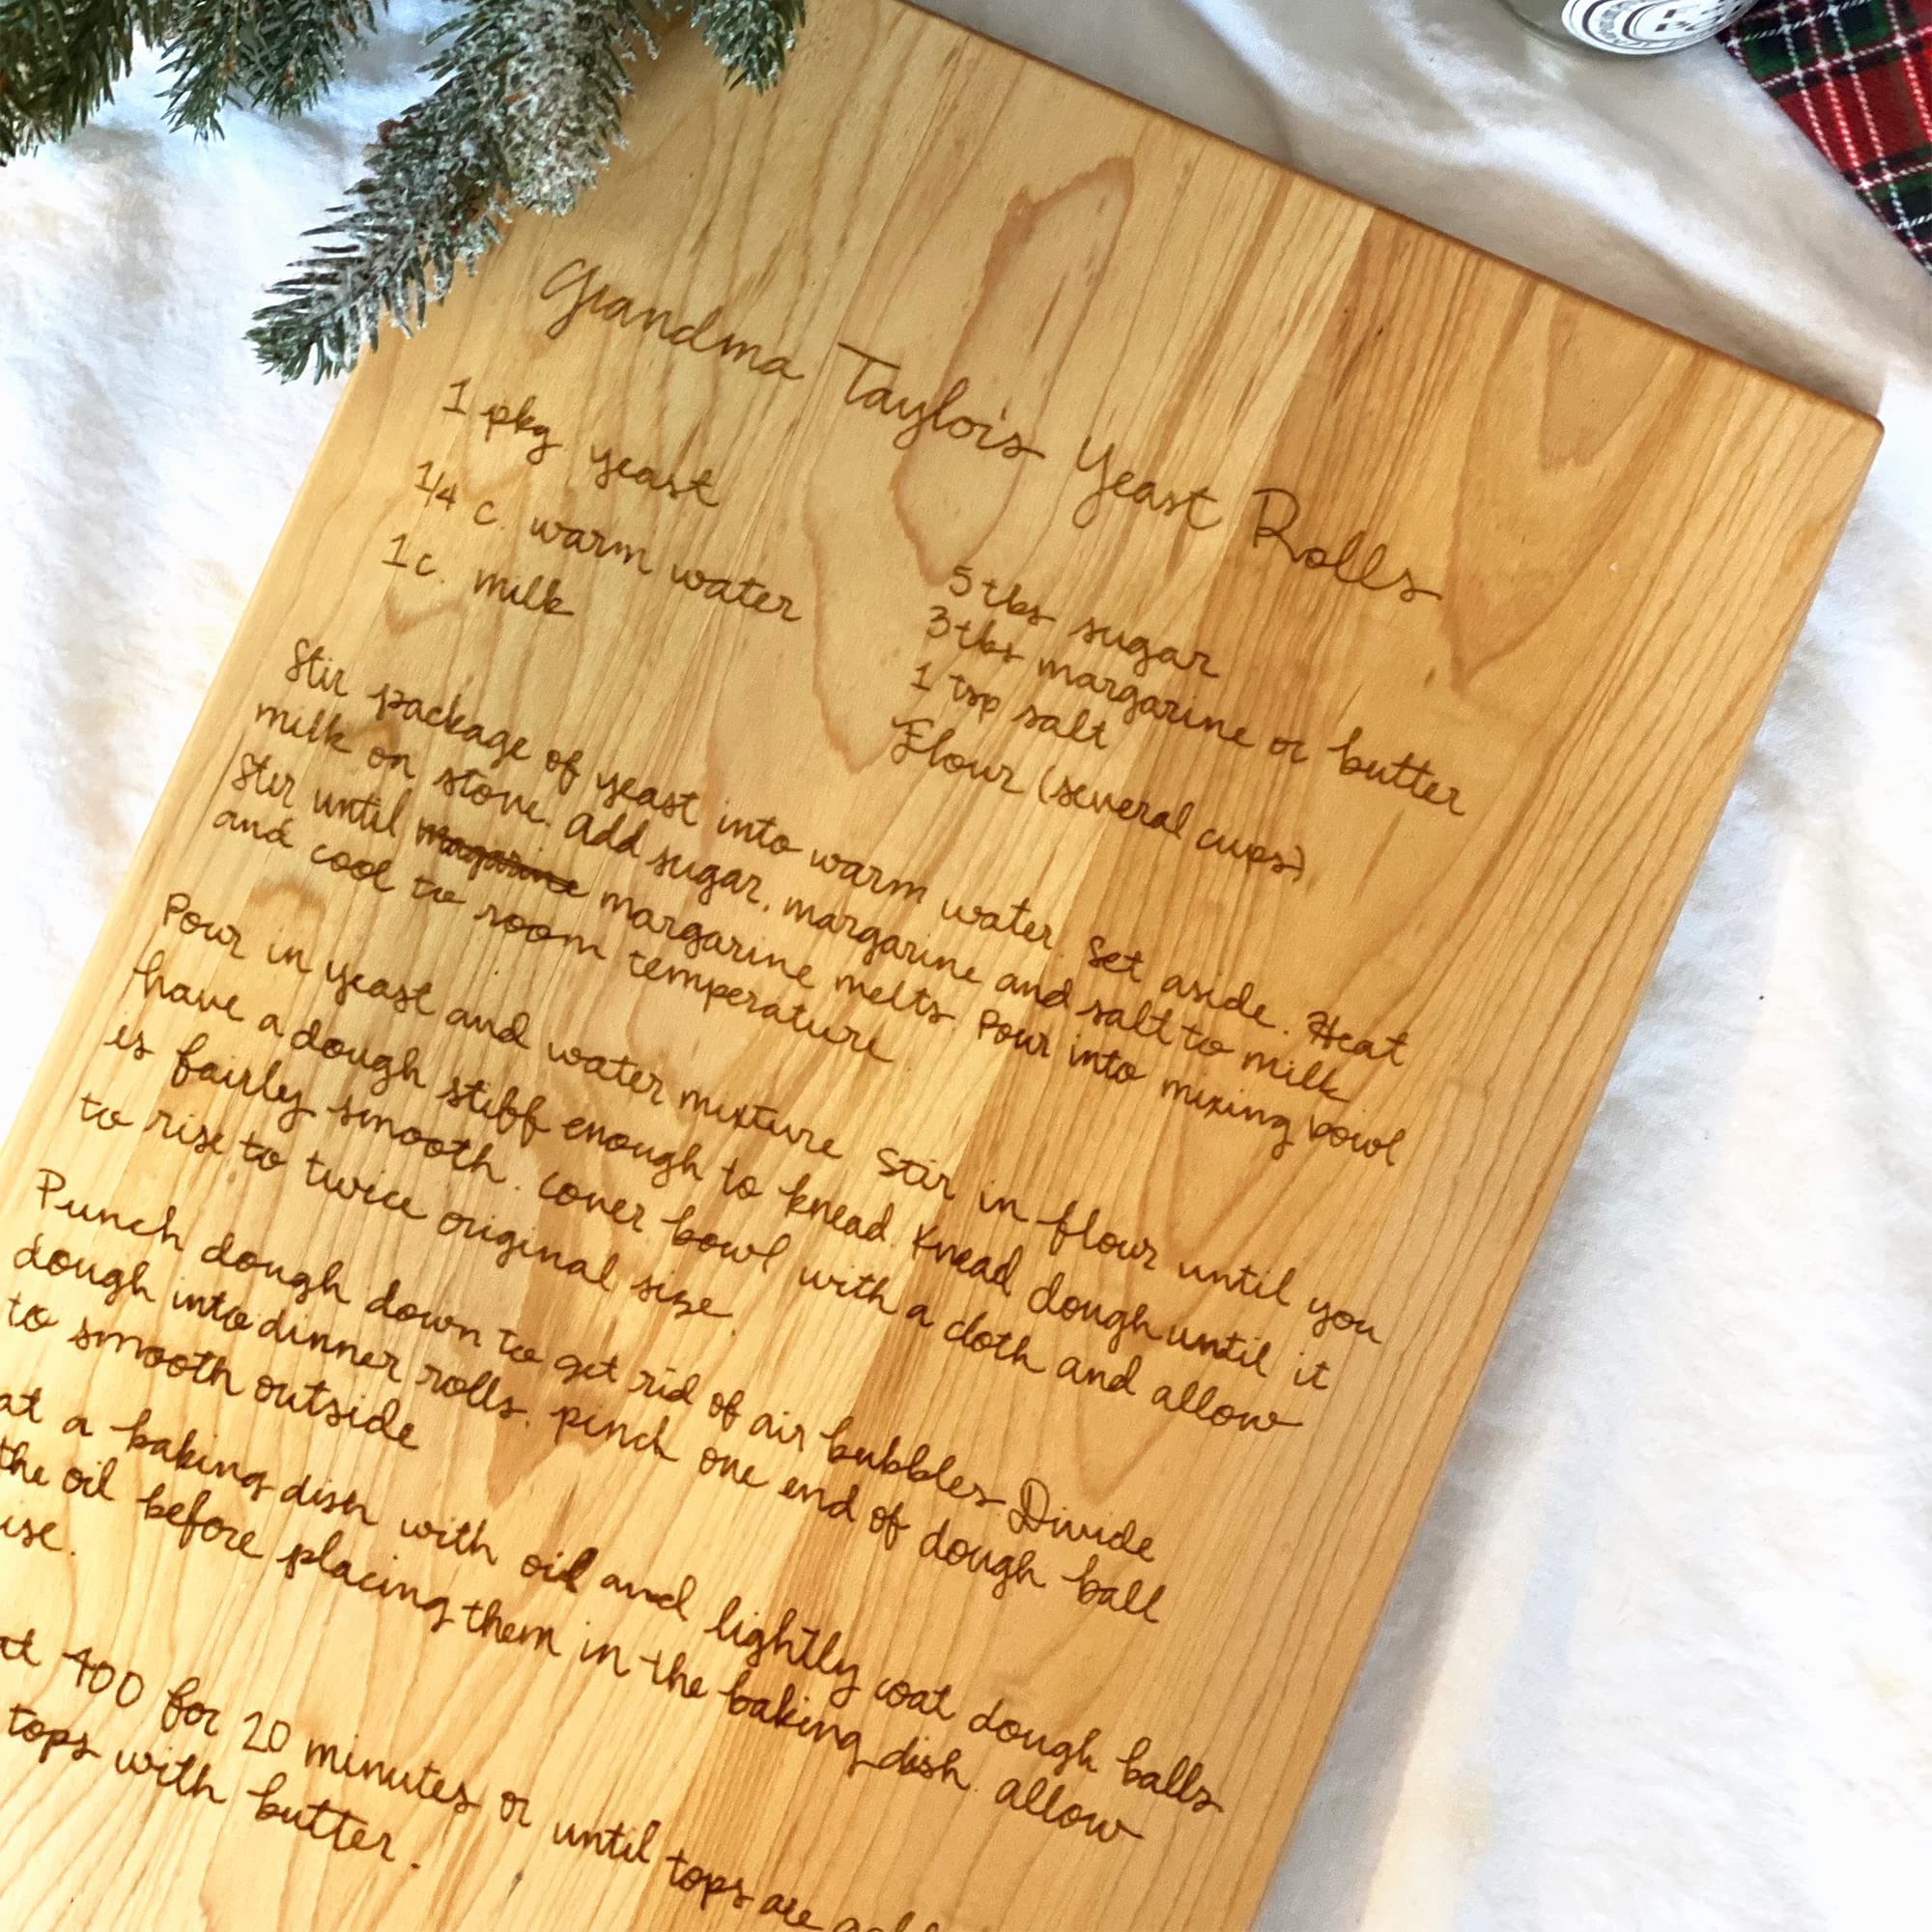 Grandma Taylor's Yeast Rolls
1 pkg yeast
1/4 c. warm water
1 c. milk
5 tbs sugar
3 tbs margarine or butter
1 tsp salt
Flour (several cups)
Stir package of yeast into warm water. Set aside. Heat
milk on stove. Add sugar, margarine and salt to milk
Stir until margarine melts. Pour into mixing bowl
and cool to room temperature
Pour in yeast and water mixture Stir in flour until you
have a dough stiff enough to knead. Knead dough until it
is fairly smooth. cover bowl with a cloth and allow
to rise to twice original size.
Punch dough down to get rid of air bubbles Divide
dough into dinner rolls. pinch one end of dough ball
to smooth outside
at a baking dish with oil and lightly coat dough balls
the oil before placing them in the baking dish. Allow
ise.
at 400 for 20 minutes or until tops are
tops with butter.